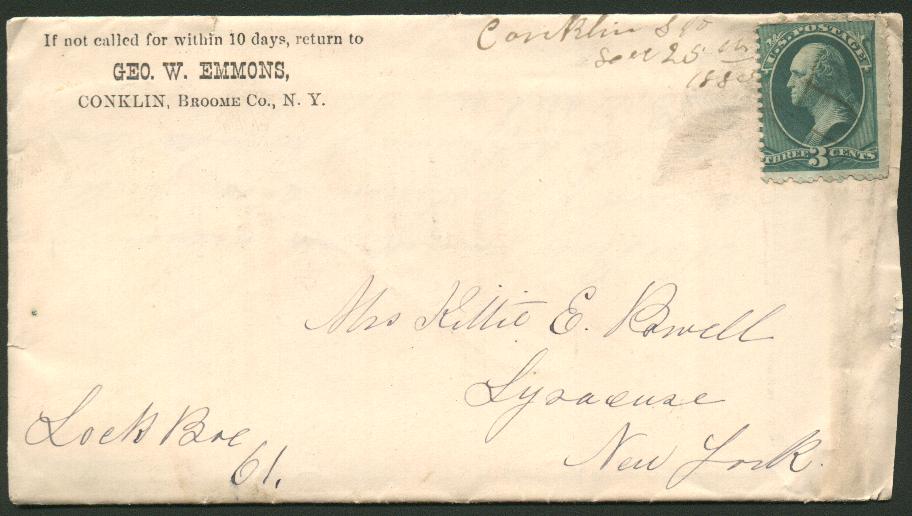 If not called for within 10 days, return to
GEO. W. EMMONS,
CONKLIN, BROOME CO., N. Y.
Conklin
25
U.S. POSTAGE
THREE 3 CENTS
Mrs Kittie E. Powell
Syracuse
New York.
Lock Box
61.